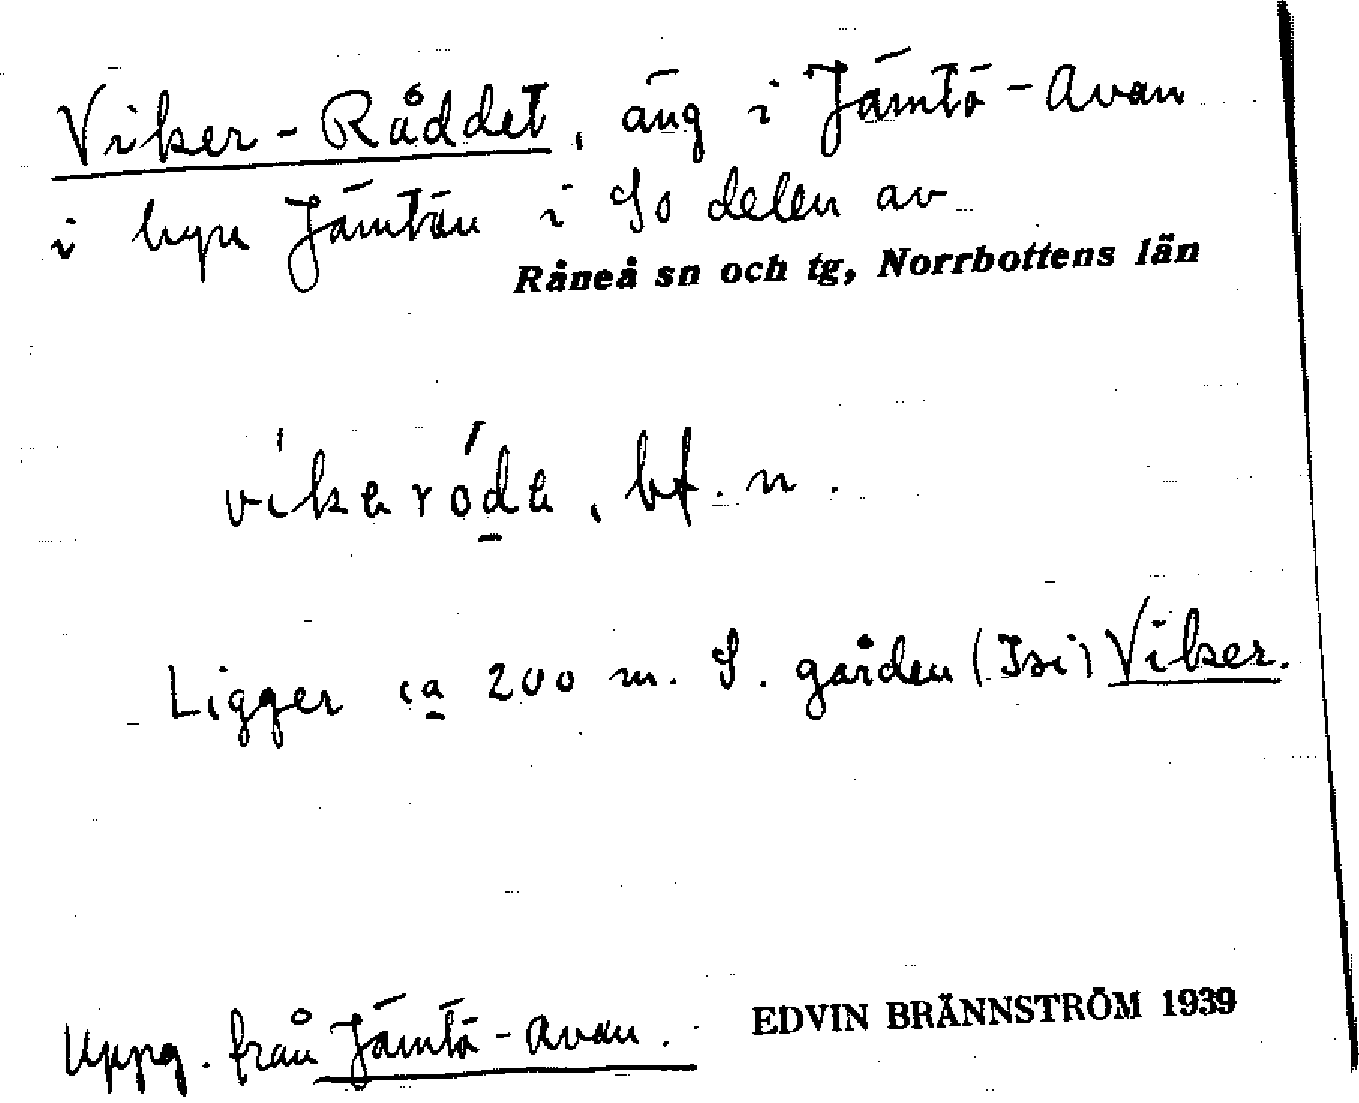 Viker-Råddet, äng i Jämtö-Avan
i byn Jämtön i So delen av
Råneå sn och tg, Norrbottens län
vikeróde, bf. n.
Ligger ca 200 m. S. gården (Isi) Viker.
Uppg. från Jämtö-Avan.
EDVIN BRÄNNSTRÖM 1939